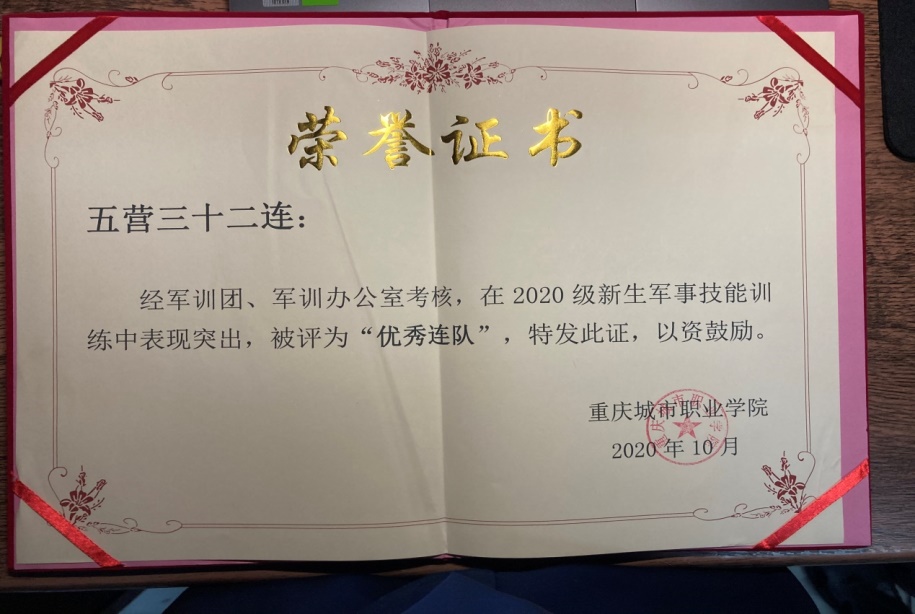 荣誉证书
五营三十二连：
经军训团、军训办公室考核，在 2020 级新生军事技能训
练中表现突出，被评为“优秀连队”，特发此证，以资鼓励。
重庆城市职业学院
2020 年 10 月
重庆城市职业学院